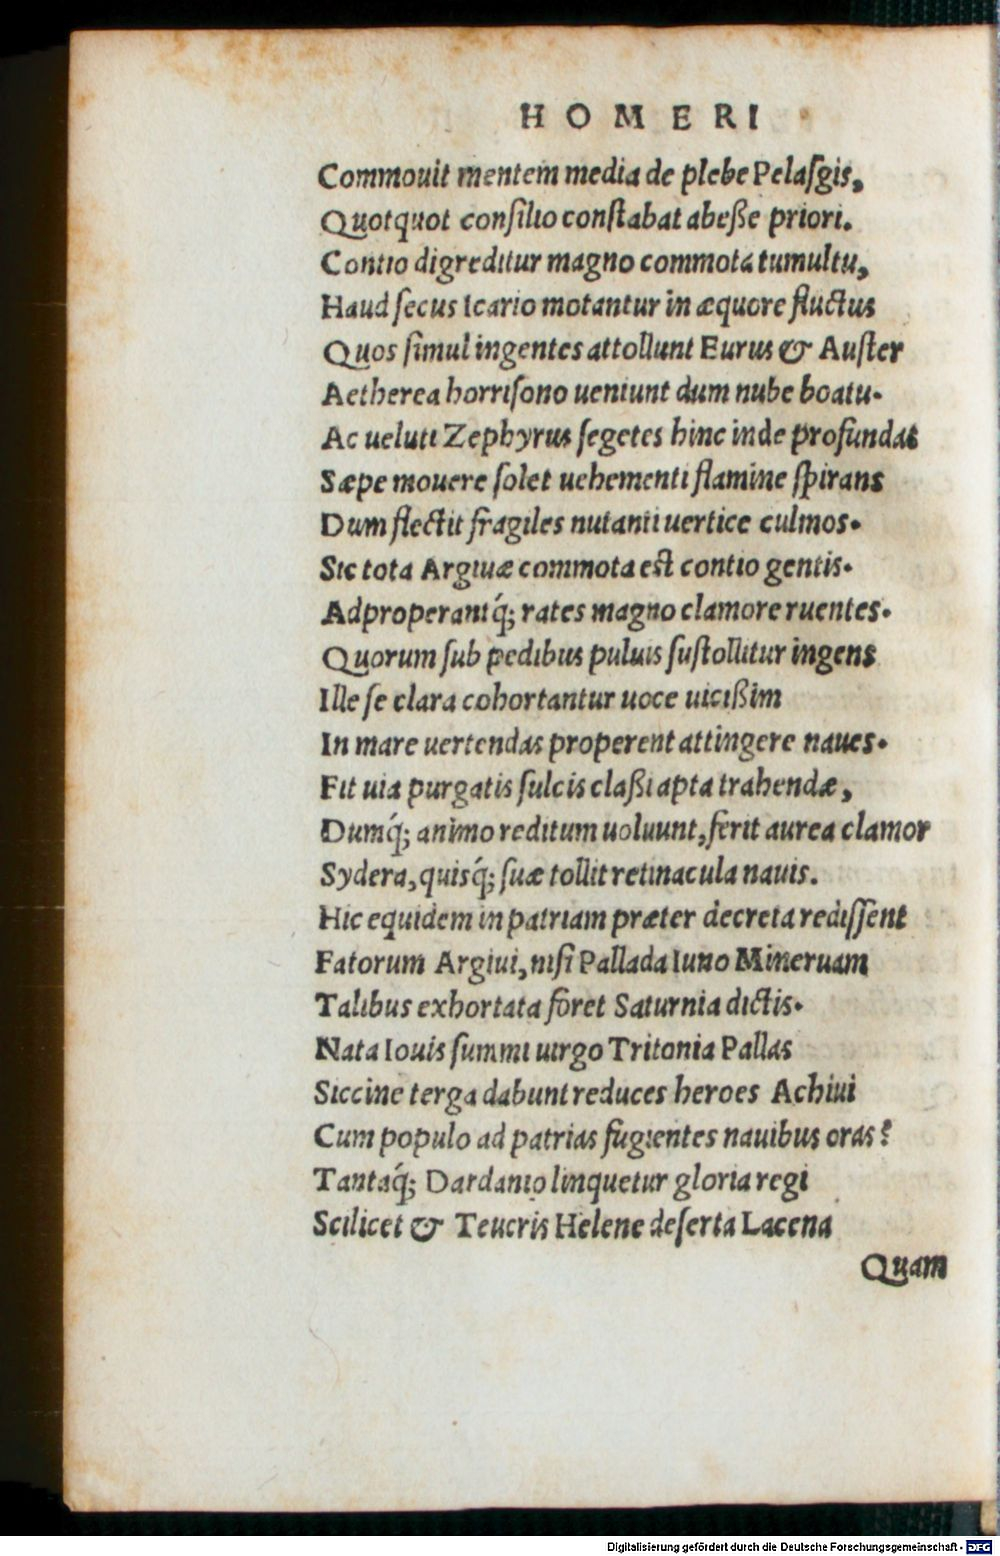 HOMERI
Commouit mentem media de plebe Pelaſgis,
Quotquot conſilio conſtabat abeſſe priori.
Contio digreditur magno commota tumultu,
Haud ſecus Icario motantur in æquore fluctus
Quos ſimul ingentes attollunt Eurus & Auſter
Aetherea horriſono ueniunt dum nube boatu.
Ac ueluti Zephyrus ſegetes hinc inde profundas
Sæpe mouere ſolet uehementi flamine ſpirans
Dum flectit fragiles nutanti uertice culmos.
Sic tota Argiuæ commota eſt contio gentis.
Adproperantq́; rates magno clamore ruentes.
Quorum ſub pedibus puluis ſuſtollitur ingens
Ille ſe clara cohortantur uoce uicißim
In mare uertendas properent attingere naues.
Fit uia purgatis ſulcis claßi apta trahendæ,
Dumq́; animo reditum uoluunt, ferit aurea clamor
Sydera, quisq́; ſuæ tollit retinacula nauis.
Hic equidem in patriam præter decreta rediſſent
Fatorum Argiui, niſi Pallada Iuno Mineruam
Talibus exhortata foret Saturnia dictis.
Nata Iouis ſummi uirgo Tritonia Pallas
Siccine terga dabunt reduces heroes Achiui
Cum populo ad patrias fugientes nauibus oras?
Tantaq́; Dardanio linquetur gloria regi
Scilicet & Teucris Helene deſerta Lacena
Quam
Digitalisierung gefördert durch die Deutsche Forschungsgemeinschaft - DFG